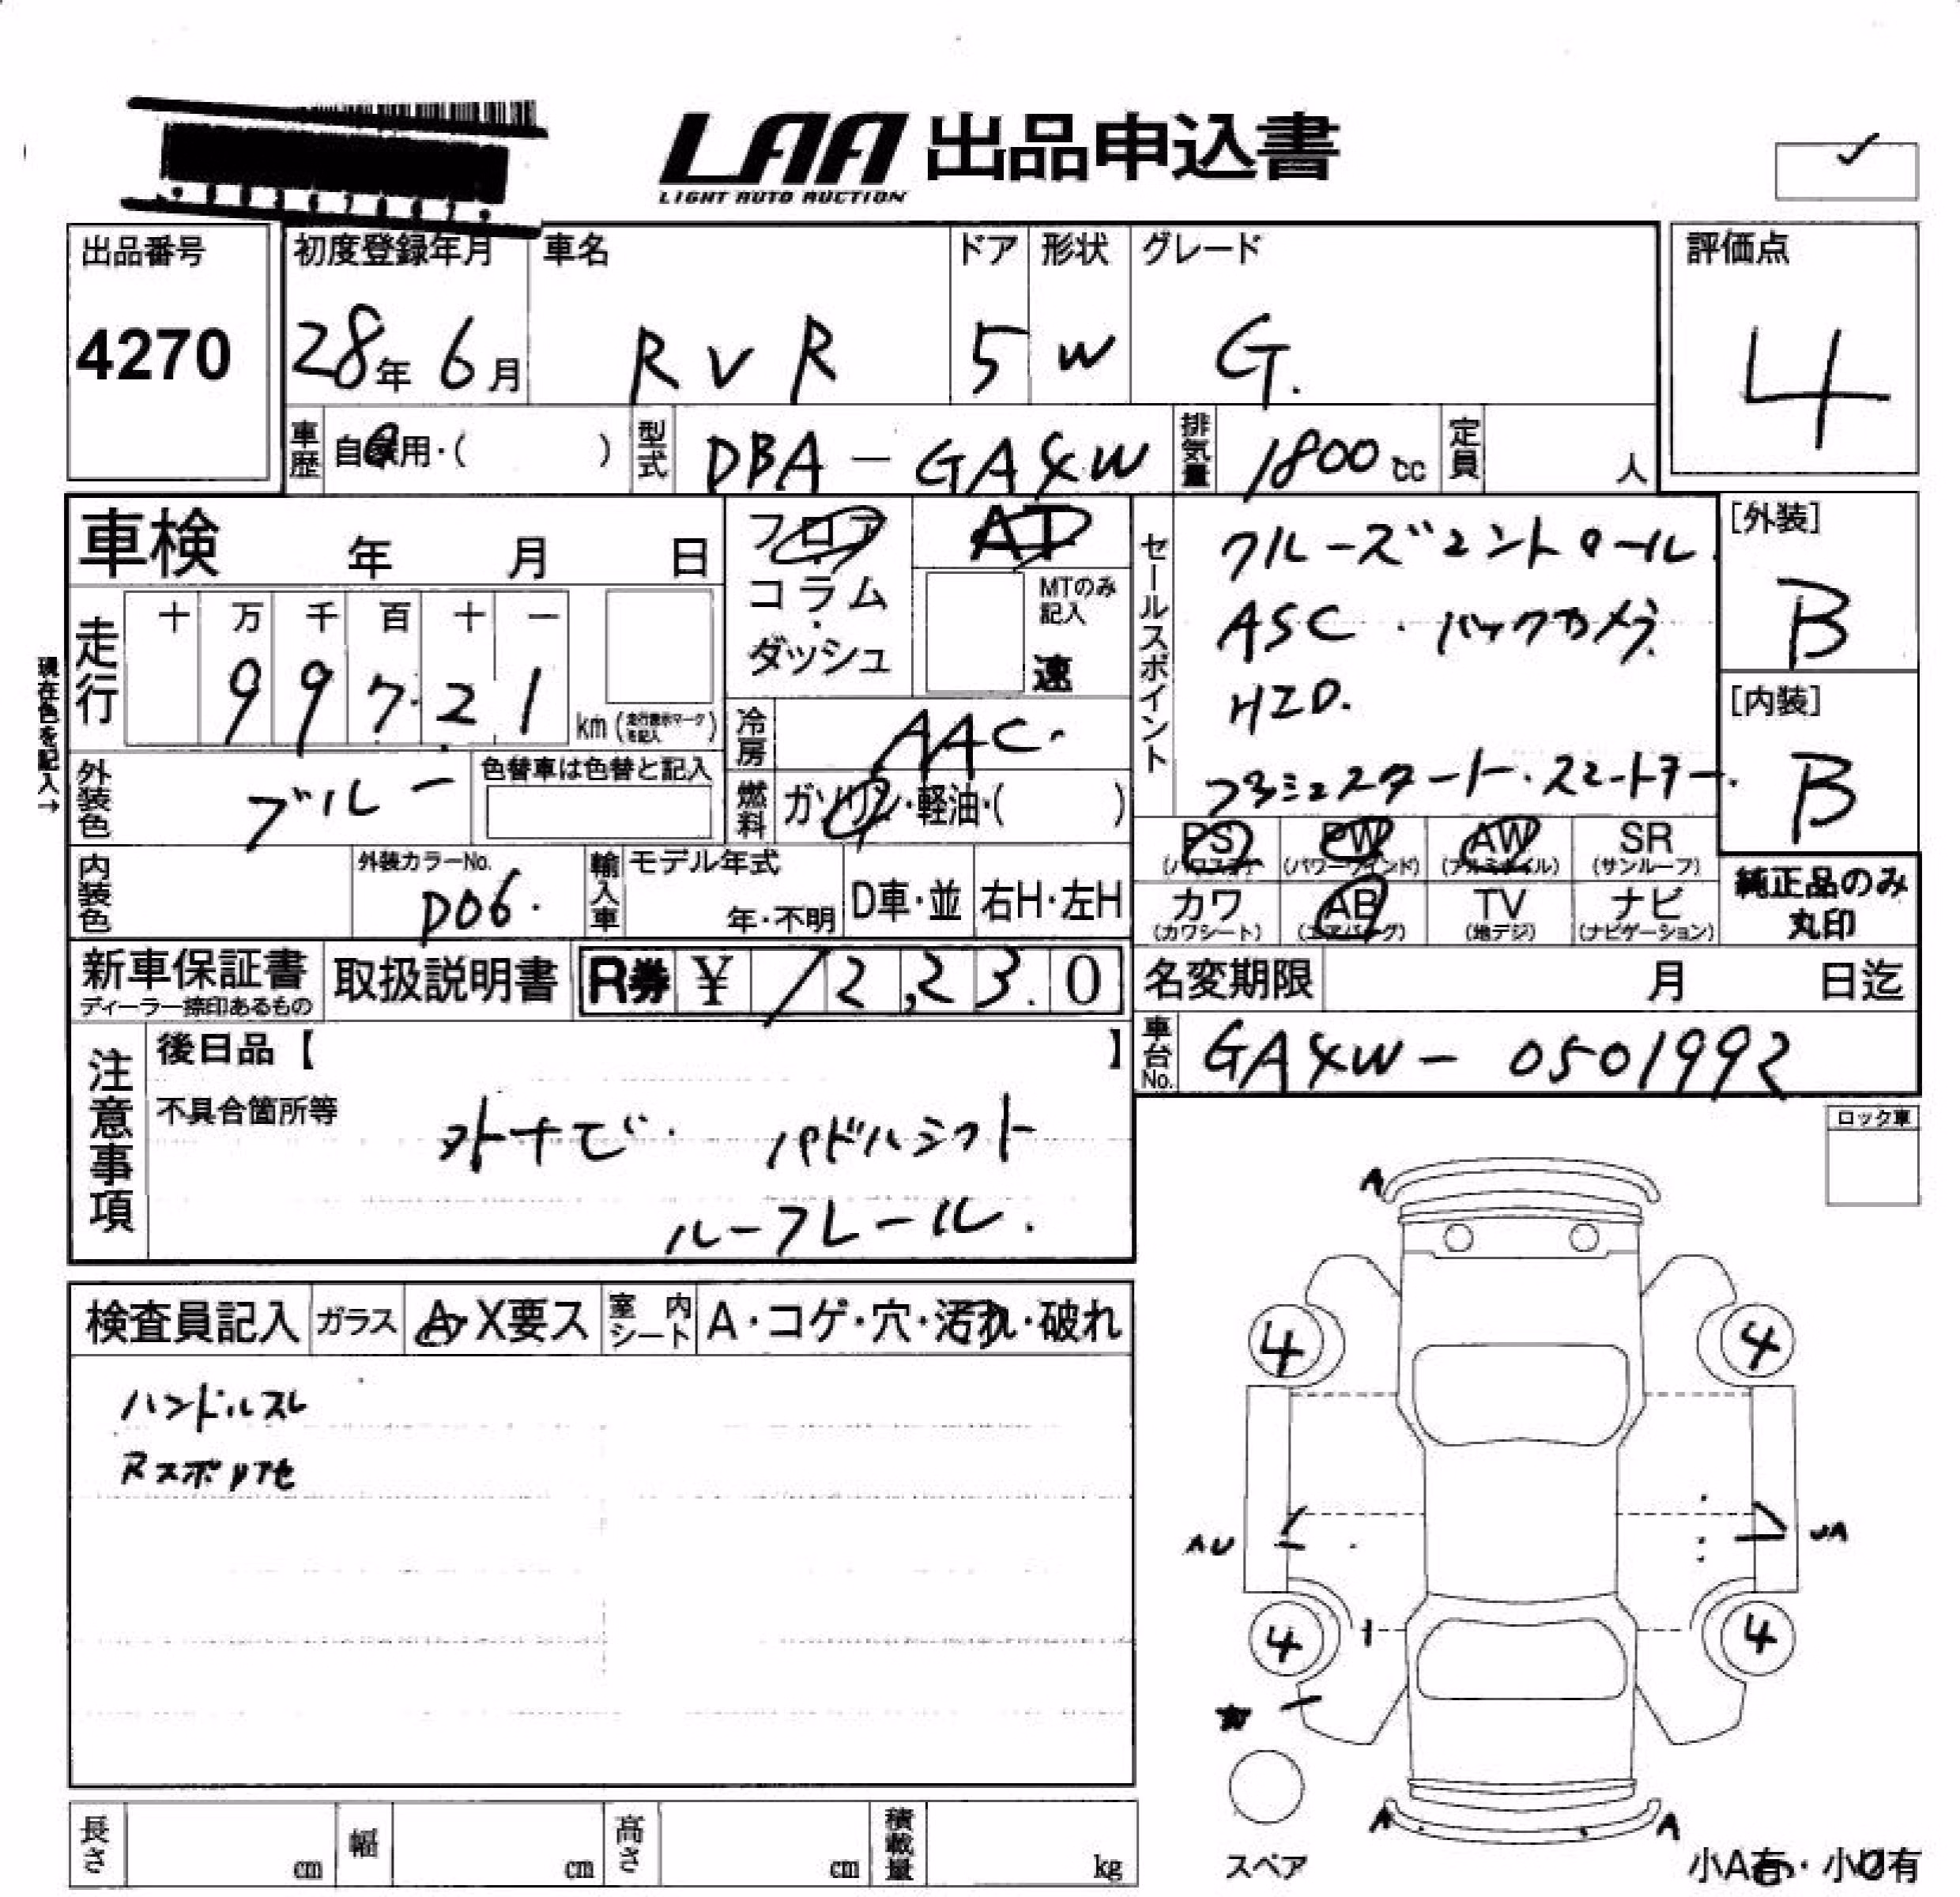 LAA 出品申込書
LIGHT AUTO AUCTION
出品番号
4270
初度登録年月
28年 6月
車名
RVR
ドア
5
形状
W
グレード
G.
評価点
4
車歴 自家用・( )
型式 DBA-GA4W
排気量 1800cc
定員 人
車検 年 月 日
フロア
コラム
ダッシュ
AT
MTのみ記入
速
セールスポイント
クルーズコントロール.
ASC・バックカメラ.
HID.
プッシュスタート・スマートキー.
[外装]
B
[内装]
B
現在色を記入→
走行
十 万 千 百 十 一
9 9 7 2 1
km (走行表示マークを記入)
冷房 AAC.
燃料 ガソリン・軽油・( )
外装色 ブルー
色替車は色替と記入
内装色
外装カラーNo.
D06.
輸入車 モデル年式
年・不明
D車・並
右H・左H
PS (パワステ)
PW (パワーウインド)
AW (アルミホイル)
SR (サンルーフ)
カワ (カワシート)
AB (エアバッグ)
TV (地デジ)
ナビ (ナビゲーション)
純正品のみ
丸印
新車保証書
ディーラー捺印あるもの
取扱説明書
R券 ¥ 12,23.0
名変期限 月 日迄
車台No. GA4W-0501992
注意事項
後日品【 】
不具合箇所等
外ナビ. パドルシフト
ルーフレール.
ロック車
検査員記入
ガラス A・X要ス
室内シート A・コゲ・穴・汚れ・破れ
ハンドルスレ
A
4
4
AU
UA
4
4
A
A
スペア
小A有・小U有
長さ cm
幅 cm
高さ cm
積載量 kg